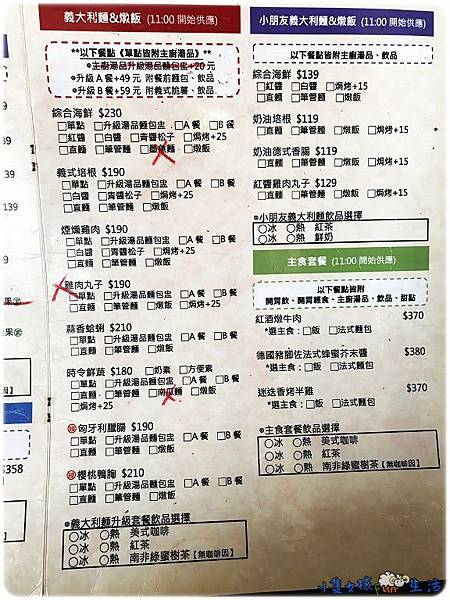 義大利麵&燉飯 (11:00 開始供應)
**以下餐點《單點皆附主廚湯品》**
●主廚湯品升級湯品麵包盅+20 元
●升級 A 餐+49 元 附餐前麵包、飲品
●升級 B 餐+59 元 附義式脆薯、飲品
綜合海鮮 $230
□單點 □升級湯品麵包盅 □A 餐 □B 餐
□紅醬 □白醬 □青醬松子 □焗烤+25
□直麵 □筆管麵 □墨魚麵 □燉飯
義式培根 $190
□單點 □升級湯品麵包盅 □A 餐 □B 餐
□白醬 □青醬松子 □焗烤+25
□直麵 □筆管麵 □燉飯
煙燻雞肉 $190
□單點 □升級湯品麵包盅 □A 餐 □B 餐
□白醬 □青醬松子 □焗烤+25
□直麵 □筆管麵 □燉飯
雞肉丸子 $190
□單點 □升級湯品麵包盅 □A 餐 □B 餐
□直麵 □筆管麵 □燉飯 □焗烤+25
蒜香蛤蜊 $210
□單點 □升級湯品麵包盅 □A 餐 □B 餐
□直麵 □筆管麵 □燉飯
時令鮮蔬 $180 □奶素 □方便素
□單點 □升級湯品麵包盅 □A 餐 □B 餐
□直麵 □筆管麵 □南瓜麵 □燉飯
□焗烤+25
㊕匈牙利臘腸 $190
□單點 □升級湯品麵包盅 □A 餐 □B 餐
□直麵 □筆管麵 □燉飯
㊕櫻桃鴨胸 $210
□單點 □升級湯品麵包盅 □A 餐 □B 餐
□直麵 □筆管麵 □燉飯
●義大利麵升級套餐飲品選擇
○冰 ○熱 美式咖啡
○冰 ○熱 紅茶
○冰 ○熱 南非綠蜜樹茶【無咖啡因】
小朋友義大利麵&燉飯 (11:00 開始供應)
以下餐點皆附主廚湯品、飲品
綜合海鮮 $139
□紅醬 □白醬 □焗烤+15
□直麵 □筆管麵 □燉飯
奶油培根 $119
□直麵 □筆管麵 □燉飯 □焗烤+15
奶油德式香腸 $119
□直麵 □筆管麵 □燉飯 □焗烤+15
紅醬雞肉丸子 $129
□直麵 □筆管麵 □燉飯 □焗烤+15
●小朋友義大利麵飲品選擇
○冰 ○熱 紅茶
○冰 ○熱 鮮奶
主食套餐 (11:00 開始供應)
以下餐點皆附
開胃飲、開胃輕食、主廚湯品、飲品、甜點
紅酒燉牛肉 $370
*選主食：□飯 □法式麵包
德國豬腳佐法式蜂蜜芥末醬 $380
*選主食：□飯 □法式麵包
迷迭香烤半雞 $370
*選主食：□飯 □法式麵包
●主食套餐飲品選擇
○冰 ○熱 美式咖啡
○冰 ○熱 紅茶
○冰 ○熱 南非綠蜜樹茶【無咖啡因】
139
$358
小隻女孩 Fun 生活